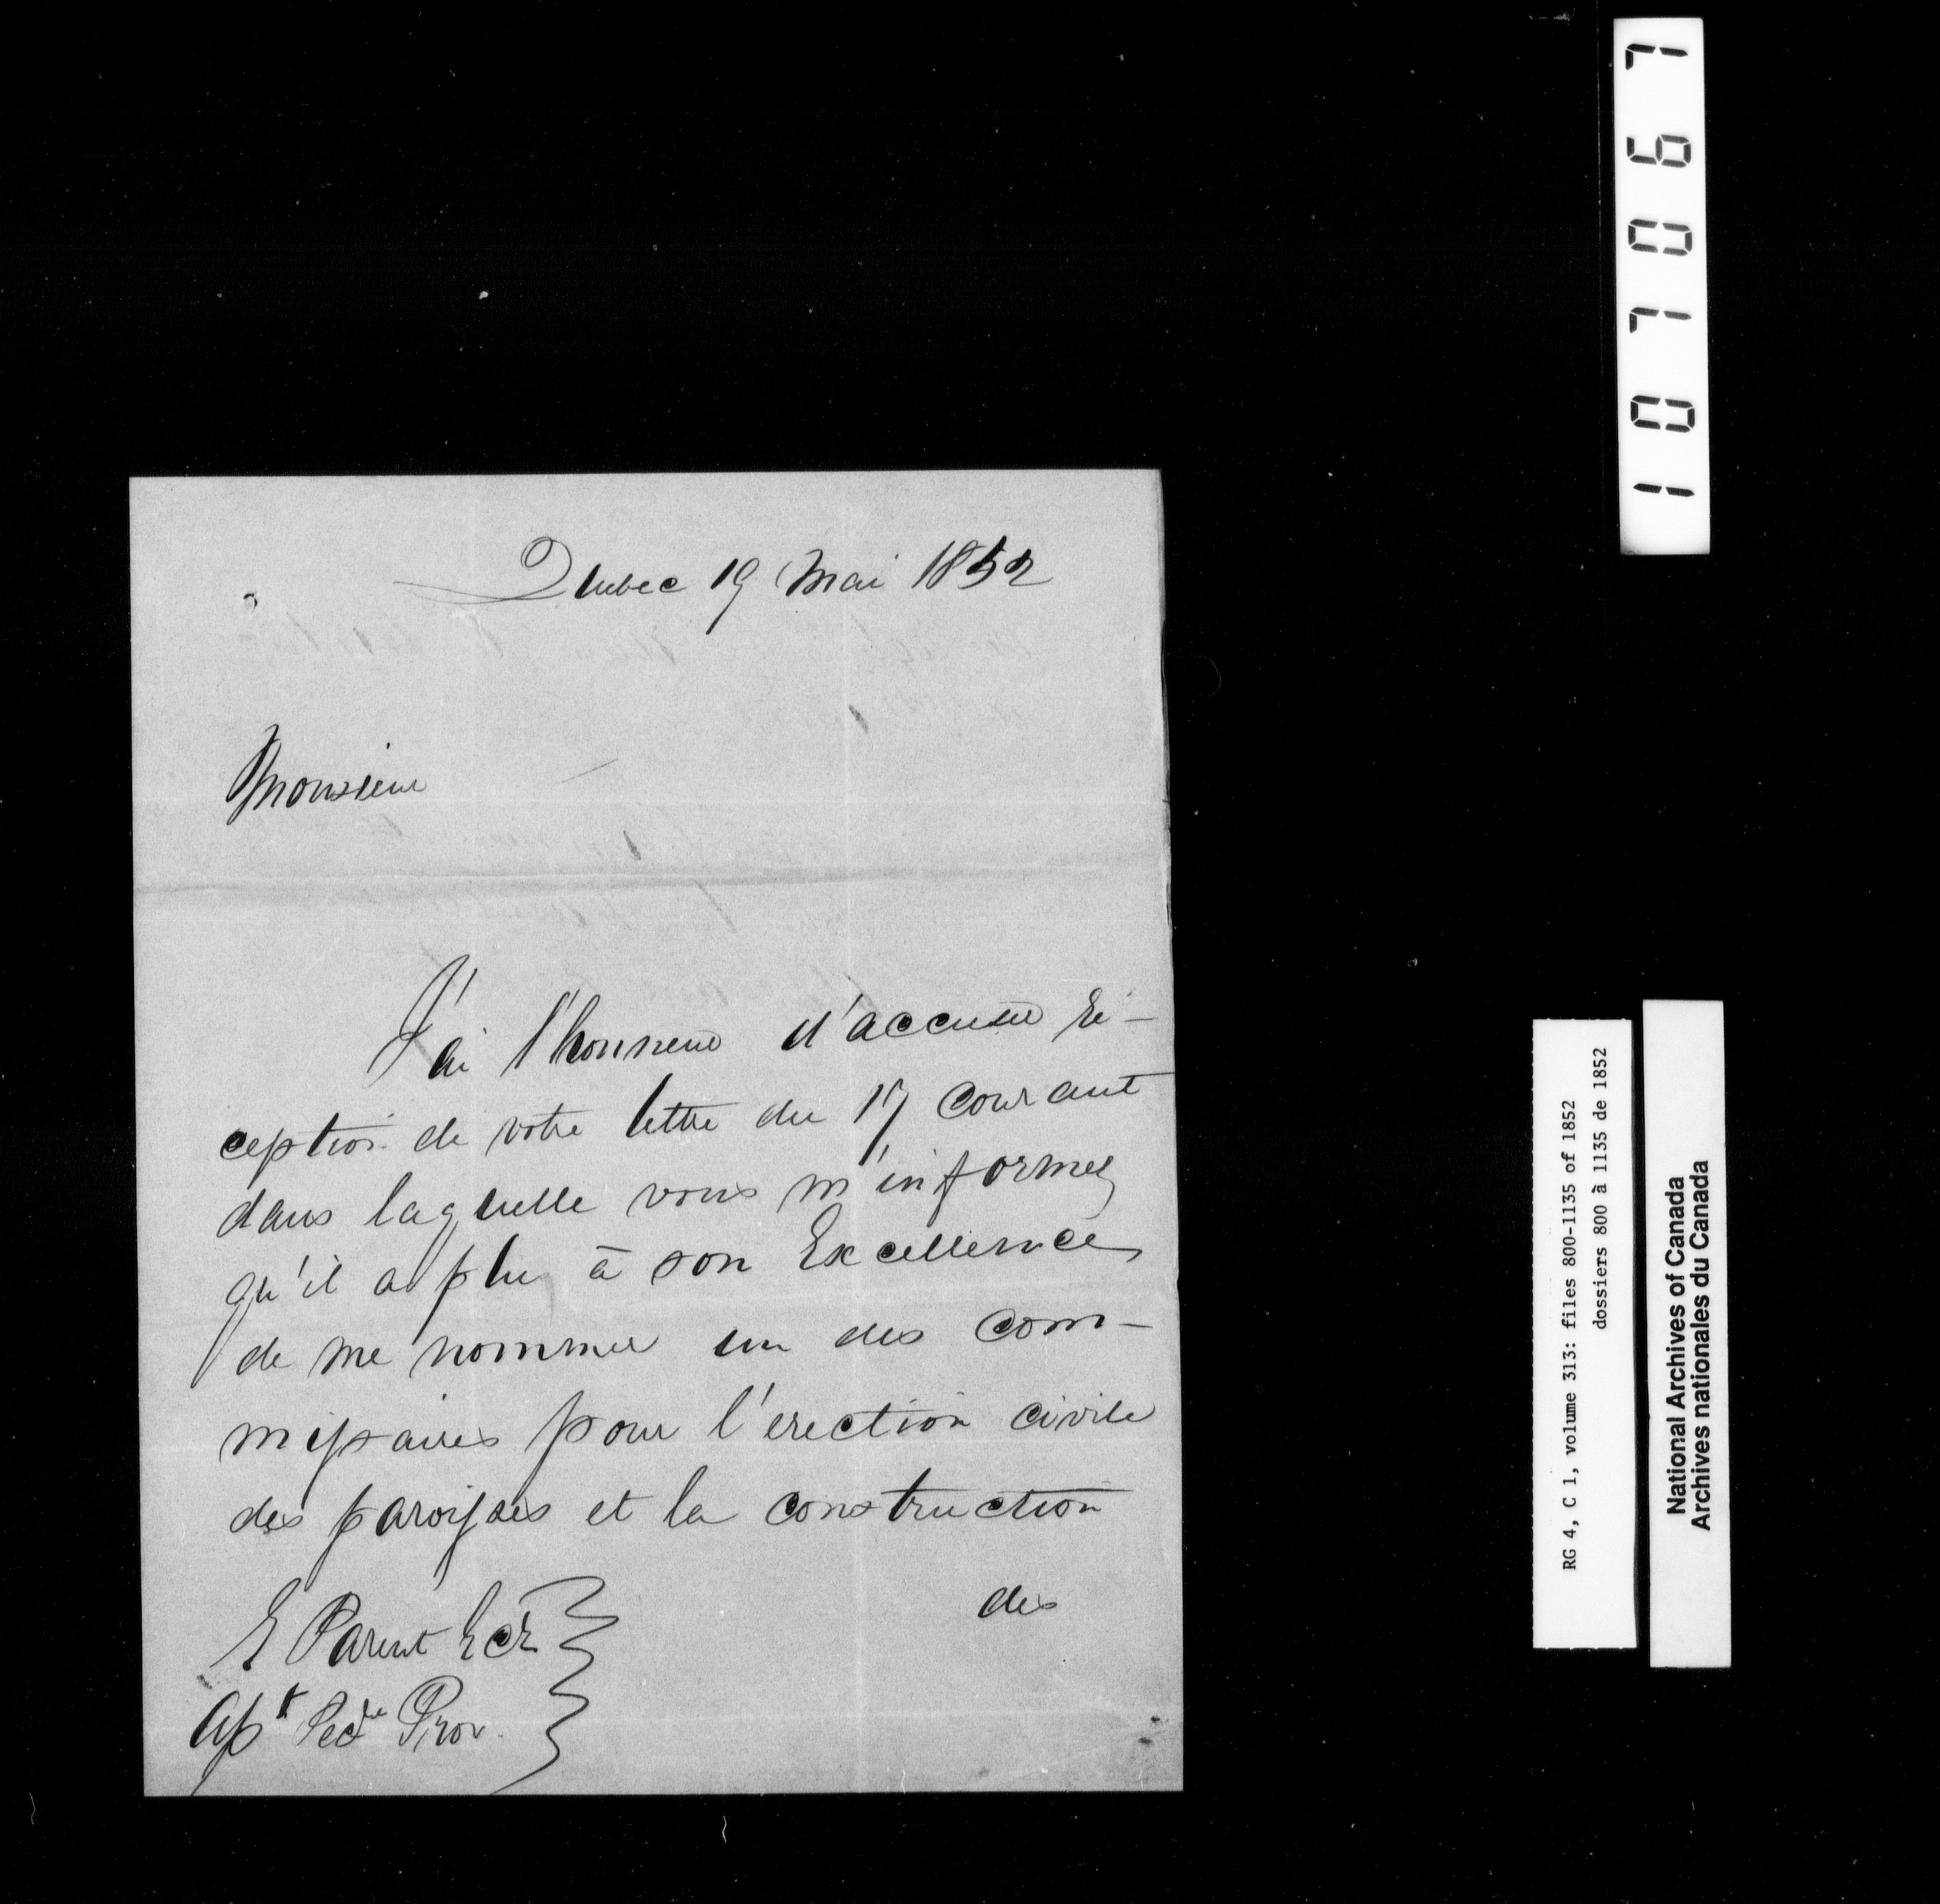 Quebec 19 Mai 1852
Monsieur
J'ai l'honneur d'accuser ré-
ception de votre lettre du 17 courant
dans laquelle vous m'informez
qu'il a plu à son Excellence
de me nommer un des com-
missaires pour l'erection civile
des paroisses et la construction
des
E Parent Ecr
Asst Secre Prov.
107067
RG 4, C 1, volume 313: files 800-1135 of 1852
dossiers 800 à 1135 de 1852
National Archives of Canada
Archives nationales du Canada